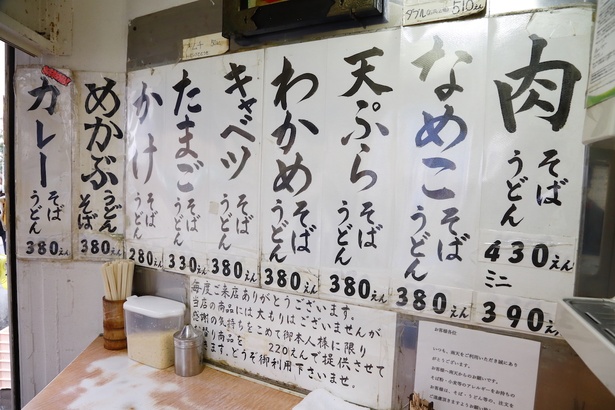 ダブル 510えん
肉 そば うどん 430えん
ミニ 390えん
なめこ そば うどん 380えん
天ぷら そば うどん 380えん
わかめ そば うどん 380えん
キャベツ そば うどん 380えん
たまご そば うどん 330えん
かけ そば うどん 280えん
めかぶ うどん そば 380えん
カレー そば うどん 380えん
毎度ご来店ありがとうございます。
当店の商品には大もりはございませんが
感謝の気持ちをこめて御本人様に限り
商品を 220えんで提供させて
ます。どうぞ御利用下さいませ。
お客様各位
いつも、当店をご利用いただき誠にあり
がとうございます。
お客様へ当店からのお願いです。